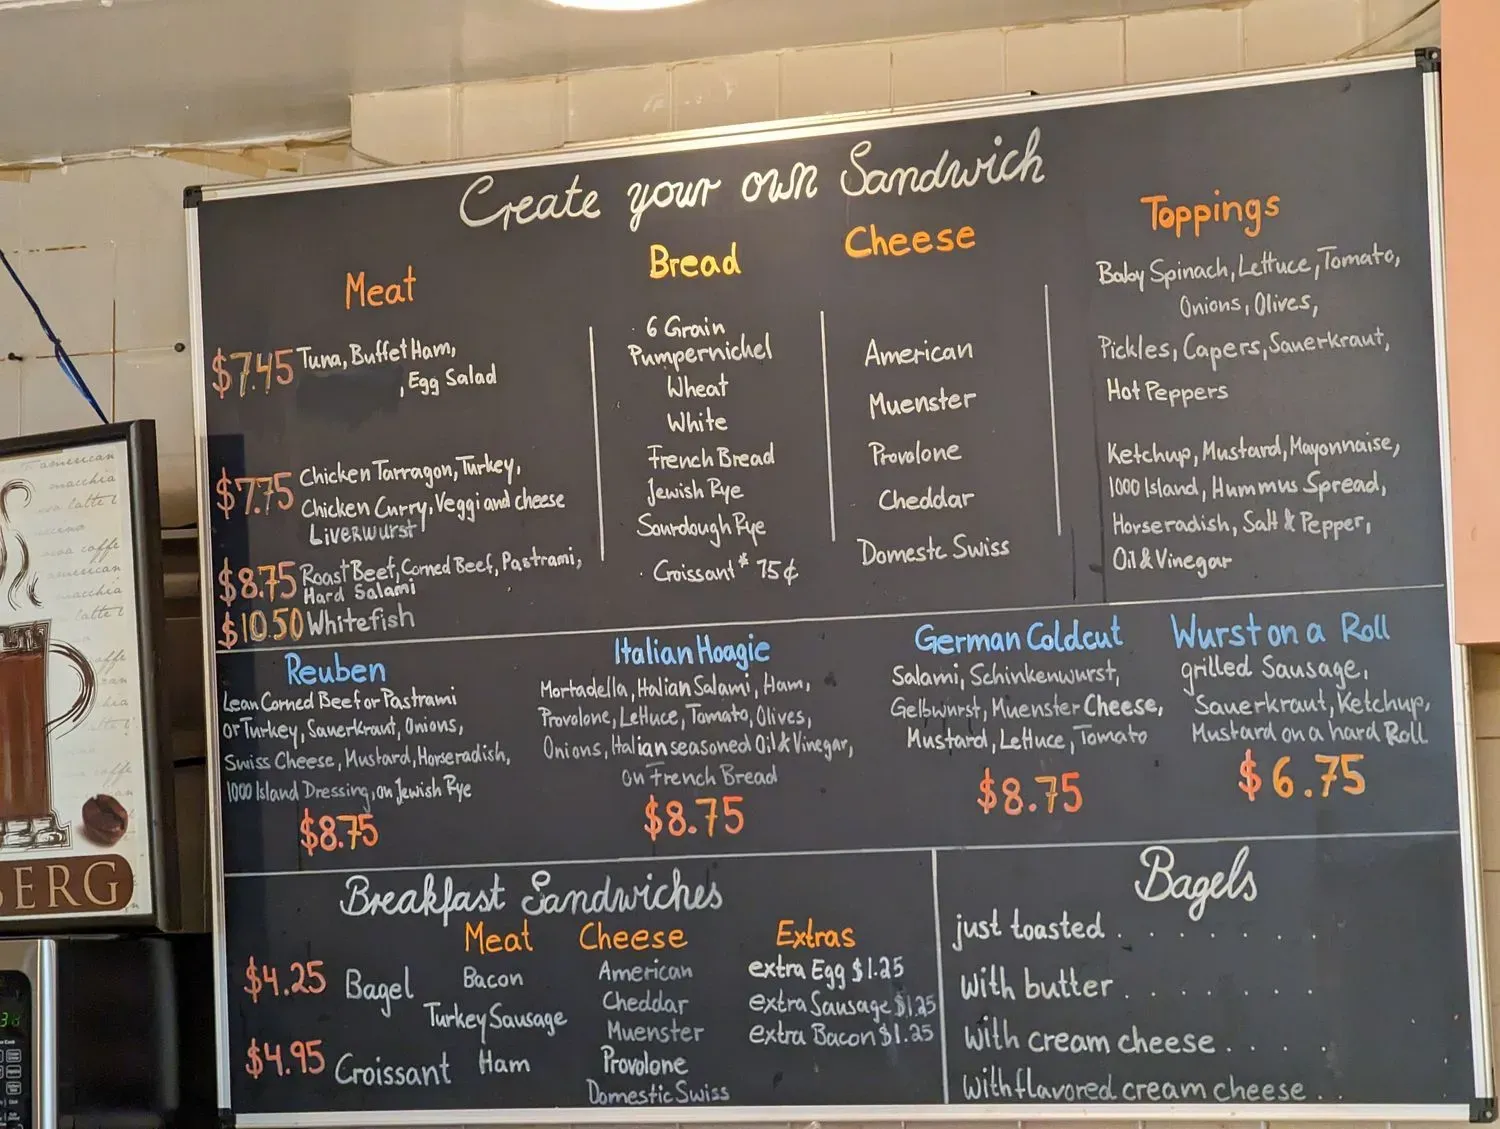 Create your own Sandwich
Meat
$7.45 Tuna, Buffet Ham,
, Egg Salad
$7.75 Chicken Tarragon, Turkey,
Chicken Curry, Veggi and cheese
Liverwurst
$8.75 Roast Beef, Corned Beef, Pastrami,
Hard Salami
$10.50 Whitefish
Bread
6 Grain
Pumpernickel
Wheat
White
French Bread
Jewish Rye
Sourdough Rye
Croissant* 75¢
Cheese
American
Muenster
Provolone
Cheddar
Domestc Swiss
Toppings
Baby Spinach, Lettuce, Tomato,
Onions, Olives,
Pickles, Capers, Sauerkraut,
Hot Peppers
Ketchup, Mustard, Mayonnaise,
1000 Island, Hummus Spread,
Horseradish, Salt & Pepper,
Oil & Vinegar
Reuben
Lean Corned Beef or Pastrami
or Turkey, Sauerkraut, Onions,
Swiss Cheese, Mustard, Horseradish,
1000 Island Dressing, on Jewish Rye
$8.75
Italian Hoagie
Mortadella, Italian Salami, Ham,
Provolone, Lettuce, Tomato, Olives,
Onions, Italian seasoned Oil & Vinegar,
on French Bread
$8.75
German Coldcut
Salami, Schinkenwurst,
Gelbwurst, Muenster Cheese,
Mustard, Lettuce, Tomato
$8.75
Wurst on a Roll
grilled Sausage,
Sauerkraut, Ketchup,
Mustard on a hard Roll
$6.75
Breakfast Sandwiches
$4.25 Bagel
$4.95 Croissant
Meat
Bacon
Turkey Sausage
Ham
Cheese
American
Cheddar
Muenster
Provolone
Domestic Swiss
Extras
extra Egg $1.25
extra Sausage $1.25
extra Bacon $1.25
Bagels
just toasted . . . . . . .
with butter . . . . . . .
with cream cheese . . . .
with flavored cream cheese . .
american
macchia
latte
caffe
american
macchia
latte
caffe
BERG